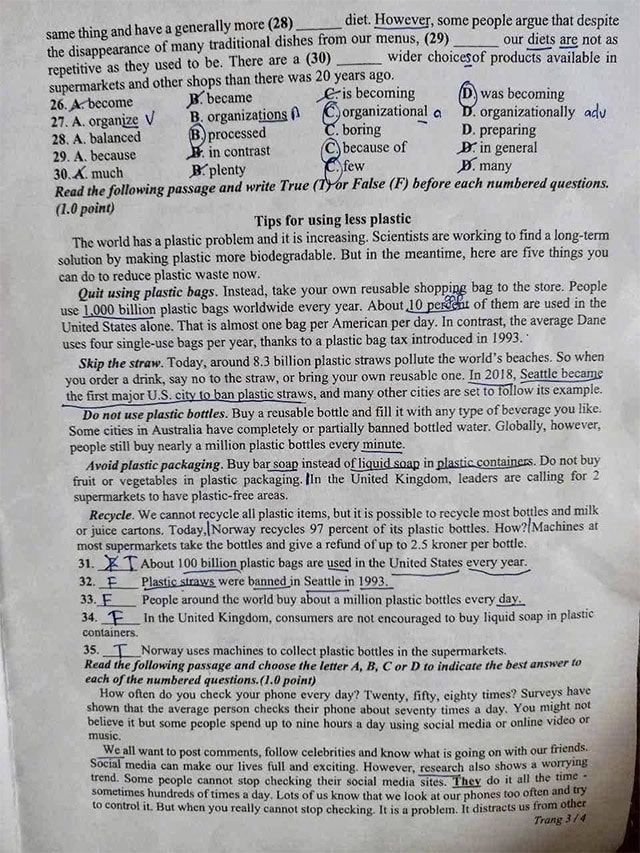 same thing and have a generally more (28) ______ diet. However, some people argue that despite
the disappearance of many traditional dishes from our menus, (29) ______ our diets are not as
repetitive as they used to be. There are a (30) ______ wider choices of products available in
supermarkets and other shops than there was 20 years ago.
26. A. become B. became C. is becoming D. was becoming
27. A. organize V B. organizations n C. organizational a D. organizationally adv
28. A. balanced B. processed C. boring D. preparing
29. A. because B. in contrast C. because of D. in general
30. A. much B. plenty C. few D. many
Read the following passage and write True (T) or False (F) before each numbered questions.
(1.0 point)
Tips for using less plastic
The world has a plastic problem and it is increasing. Scientists are working to find a long-term
solution by making plastic more biodegradable. But in the meantime, here are five things you
can do to reduce plastic waste now.
Quit using plastic bags. Instead, take your own reusable shopping bag to the store. People
use 1,000 billion plastic bags worldwide every year. About 10 percent of them are used in the
United States alone. That is almost one bag per American per day. In contrast, the average Dane
uses four single-use bags per year, thanks to a plastic bag tax introduced in 1993.
Skip the straw. Today, around 8.3 billion plastic straws pollute the world's beaches. So when
you order a drink, say no to the straw, or bring your own reusable one. In 2018, Seattle became
the first major U.S. city to ban plastic straws, and many other cities are set to follow its example.
Do not use plastic bottles. Buy a reusable bottle and fill it with any type of beverage you like.
Some cities in Australia have completely or partially banned bottled water. Globally, however,
people still buy nearly a million plastic bottles every minute.
Avoid plastic packaging. Buy bar soap instead of liquid soap in plastic containers. Do not buy
fruit or vegetables in plastic packaging. In the United Kingdom, leaders are calling for 2
supermarkets to have plastic-free areas.
Recycle. We cannot recycle all plastic items, but it is possible to recycle most bottles and milk
or juice cartons. Today, Norway recycles 97 percent of its plastic bottles. How? Machines at
most supermarkets take the bottles and give a refund of up to 2.5 kroner per bottle.
31. T About 100 billion plastic bags are used in the United States every year.
32. F Plastic straws were banned in Seattle in 1993.
33. F People around the world buy about a million plastic bottles every day.
34. F In the United Kingdom, consumers are not encouraged to buy liquid soap in plastic
containers.
35. T Norway uses machines to collect plastic bottles in the supermarkets.
Read the following passage and choose the letter A, B, C or D to indicate the best answer to
each of the numbered questions.(1.0 point)
How often do you check your phone every day? Twenty, fifty, eighty times? Surveys have
shown that the average person checks their phone about seventy times a day. You might not
believe it but some people spend up to nine hours a day using social media or online video or
music.
We all want to post comments, follow celebrities and know what is going on with our friends.
Social media can make our lives full and exciting. However, research also shows a worrying
trend. Some people cannot stop checking their social media sites. They do it all the time -
sometimes hundreds of times a day. Lots of us know that we look at our phones too often and try
to control it. But when you really cannot stop checking. It is a problem. It distracts us from other
Trang 3/4